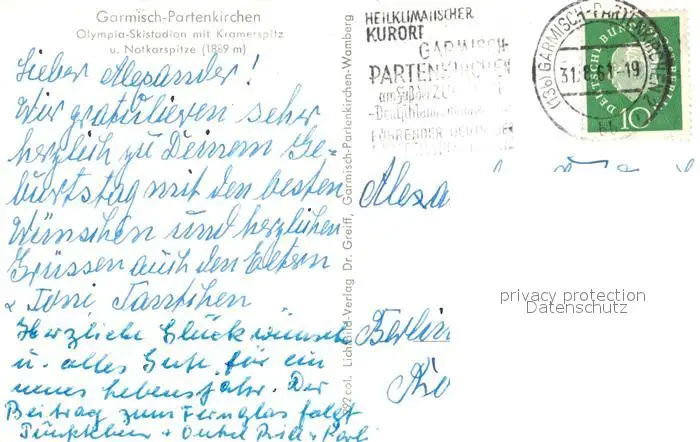 Garmisch-Partenkirchen
Olympia-Skistadion mit Kramerspitz
u. Notkarspitze (1889 m)
Lieber Alexander!
Wir gratulieren sehr
herzlich zu Deinem Ge-
burtstag mit den besten
Wünschen und herzlichen
Grüssen auch den Eltern
& Toni Tantchen
Herzliche Glückwünsche
u. alles Gute für ein
neues Lebensjahr. Der
Beitrag zum Fernglas folgt
+ Onkel
col. Lichtbild-Verlag Dr. Greiff, Garmisch-Partenkirchen-Wamberg
HEILKLIMATISCHER
KURORT
GARMISCH-
PARTENKIRCHEN
am Fuße der
FÜHRENDER DEUTSCHER
(13b) GARMISCH-PARTENKIRCHEN
-19
DEUTSCHE BUNDESPOST BERLIN
10
Alexa
Berlin
privacy protection
Datenschutz